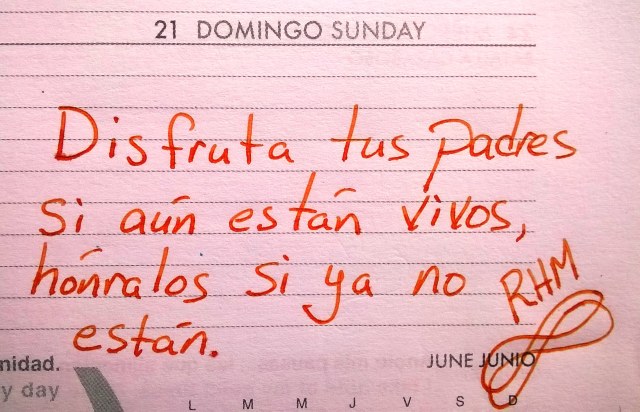 21 DOMINGO SUNDAY
Disfruta tus padres
si aún están vivos,
hónralos si ya no
están.
RHM
nidad.
y day
JUNE JUNIO
L M M J V S D